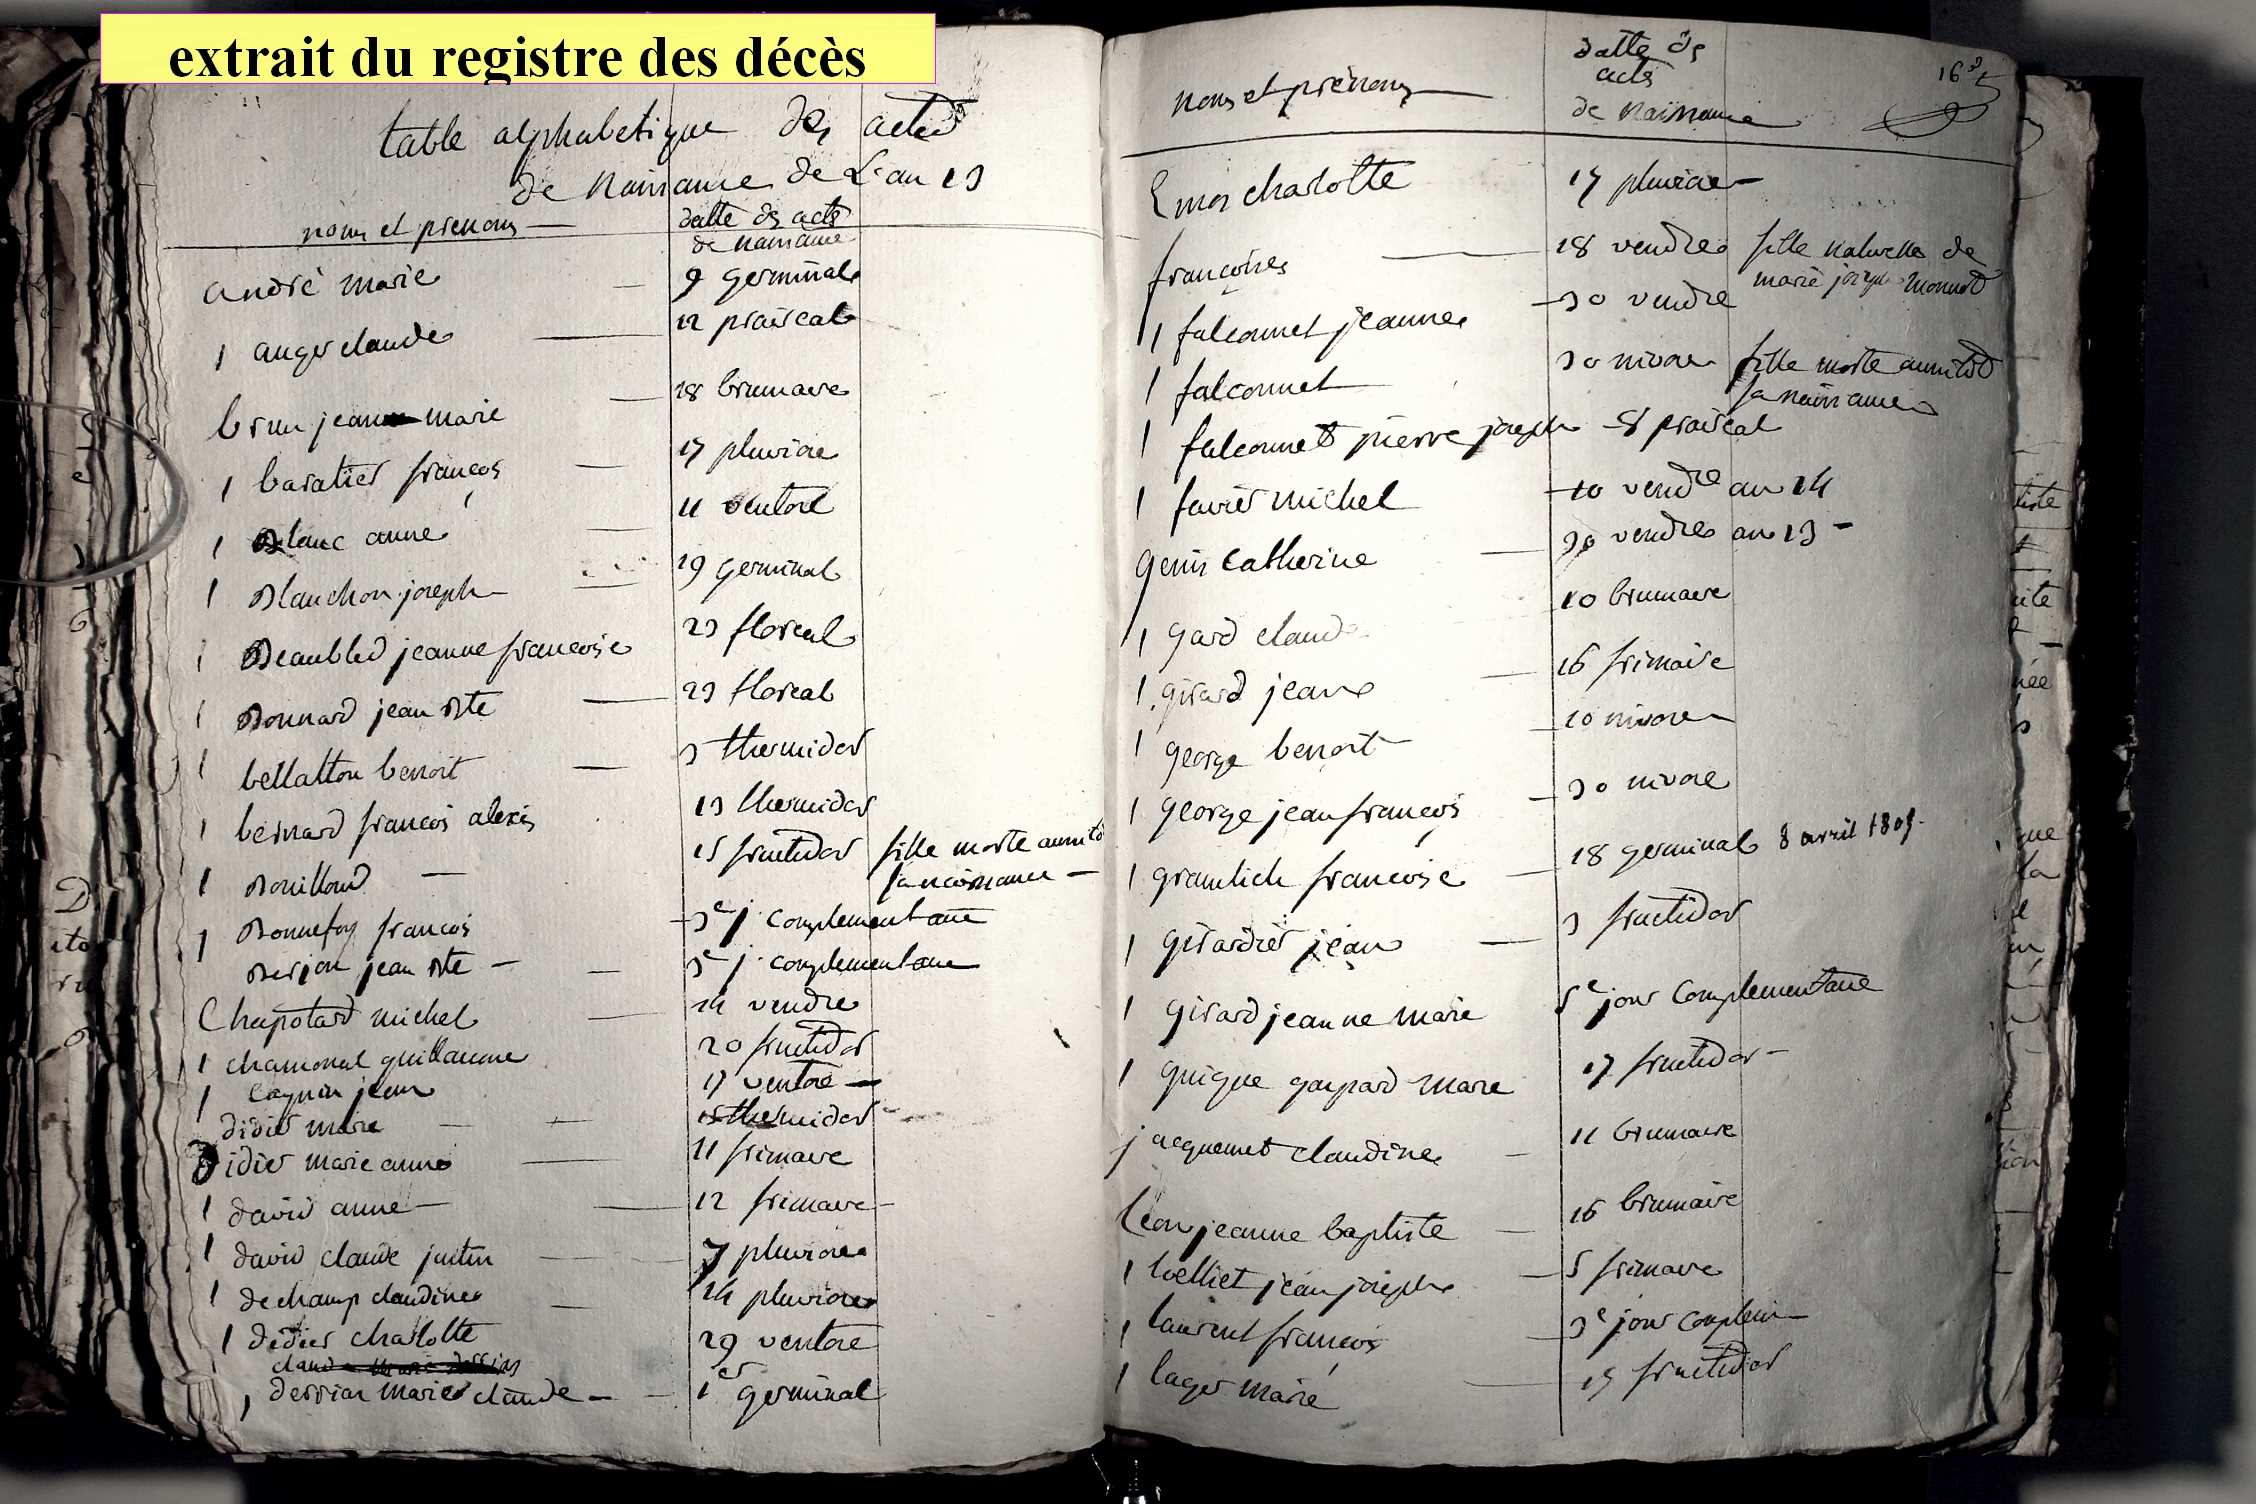 extrait du registre des décès
table alphabetique des actes
de Naissance de L'an 13
noms et prenoms
datte des actes
de naissance
andré marie 9 germinal
1 auger claude 12 praireal
brun jean marie 18 brumaire
1 baratier françois 17 pluviose
1 Blanc anne 11 ventose
1 Blanchon joseph 29 germinal
1 Beaubled jeanne francoise 23 floreal
1 Bonnard jean Bte 23 floreal
1 bellatton benoit 3 thermidor
1 bernard francois alexis 13 thermidor
1 Bouilloud 15 fructidor fille morte aussitot
sa naissance
1 Bonnefoy francois 3e j. complementaire
Berjon jean Bte 3e j. complementaire
Chapotard michel 14 vendre
1 chamonal guillaume 20 fructidor
1 jean 17 ventose
didier marie 15 thermidor
Didier marie anne 11 frimaire
1 david anne 12 frimaire
1 david claude justin 7 pluviose
1 dechamp claudine 14 pluviose
1 didier charlotte 29 ventose
1 derrian marie claude 1er germinal
noms et prénoms
datte des
actes
de Naissance
163
Emor charlotte 17 pluviose
françoises 18 vendre fille naturelle de
marie joseph monnod
1 falconnet jeanne 30 vendre
1 falconnet 30 nivose fille morte aussitot
sa naissance
1 falconnet pierre joseph 8 praireal
1 favier michel 10 vendre an 14
genis Catherine 30 vendre an 13
1 gard claude 10 brumaire
1 girard jean 16 frimaire
1 george benoit 10 nivose
1 george jean françois 30 nivose
1 gramlich francoise 18 germinal 8 avril 1805.
1 girardier jean 3 fructidor
1 girard jeanne marie 5e jour Complementaire
1 guigue gaspard marie 17 fructidor
jacquemet claudine 11 brumaire
Leon jeanne baptiste 16 brumaire
1 loelliet jean joseph 5 frimaire
1 laurent francois 3e jour complem
1 lager marie 15 fructidor